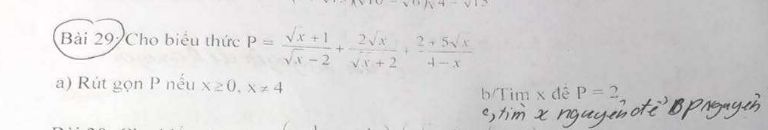 Bài 29: Cho biểu thức P = \frac{\sqrt{x}+1}{\sqrt{x}-2} + \frac{2\sqrt{x}}{\sqrt{x}+2} + \frac{2+5\sqrt{x}}{4-x}
a) Rút gọn P nếu x ≥ 0, x ≠ 4
b/ Tìm x để P = 2
c, tìm x nguyên để P nguyên